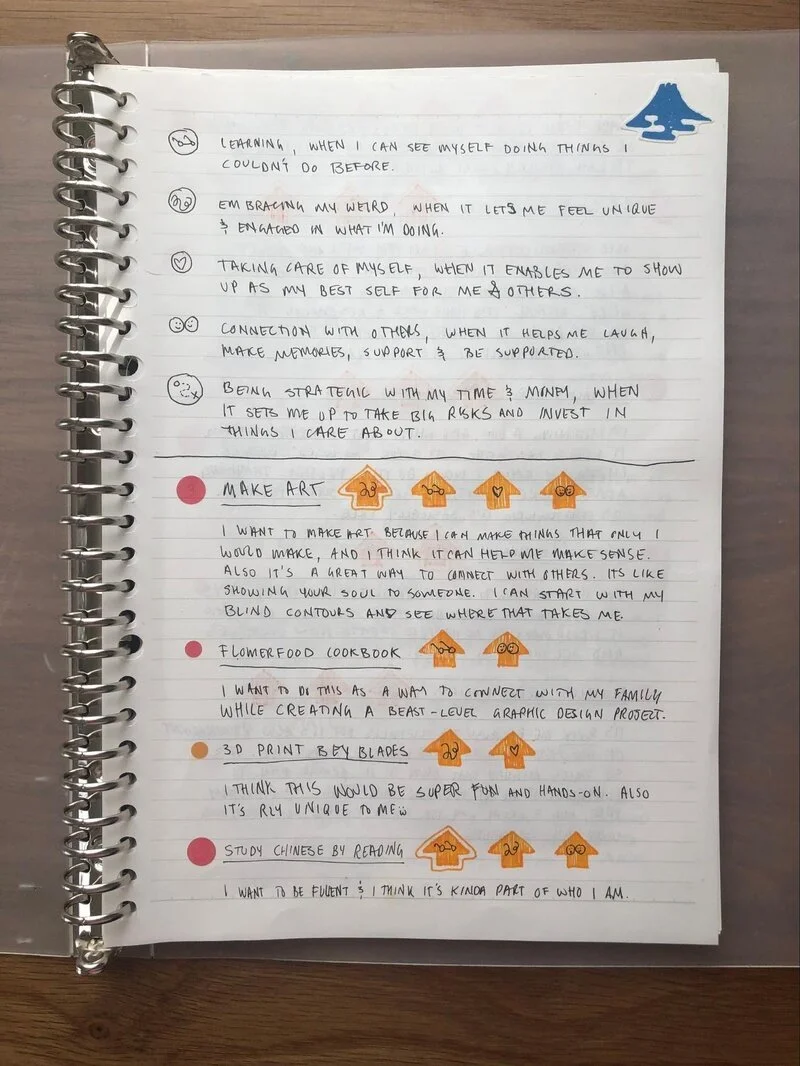 LEARNING, WHEN I CAN SEE MYSELF DOING THINGS I
COULDN'T DO BEFORE.
EMBRACING MY WEIRD, WHEN IT LETS ME FEEL UNIQUE
& ENGAGED IN WHAT I'M DOING.
TAKING CARE OF MYSELF, WHEN IT ENABLES ME TO SHOW
UP AS MY BEST SELF FOR ME & OTHERS.
CONNECTION WITH OTHERS, WHEN IT HELPS ME LAUGH,
MAKE MEMORIES, SUPPORT & BE SUPPORTED.
BEING STRATEGIC WITH MY TIME & MONEY, WHEN
IT SETS ME UP TO TAKE BIG RISKS AND INVEST IN
THINGS I CARE ABOUT.
MAKE ART
I WANT TO MAKE ART BECAUSE I CAN MAKE THINGS THAT ONLY I
WOULD MAKE, AND I THINK IT CAN HELP ME MAKE SENSE.
ALSO IT'S A GREAT WAY TO CONNECT WITH OTHERS. ITS LIKE
SHOWING YOUR SOUL TO SOMEONE. I CAN START WITH MY
BLIND CONTOURS AND SEE WHERE THAT TAKES ME.
FLOWERFOOD COOKBOOK
I WANT TO DO THIS AS A WAY TO CONNECT WITH MY FAMILY
WHILE CREATING A BEAST-LEVEL GRAPHIC DESIGN PROJECT.
3D PRINT BEYBLADES
I THINK THIS WOULD BE SUPER FUN AND HANDS-ON. ALSO
IT'S RLY UNIQUE TO ME
STUDY CHINESE BY READING
I WANT TO BE FLUENT & I THINK IT'S KINDA PART OF WHO I AM.